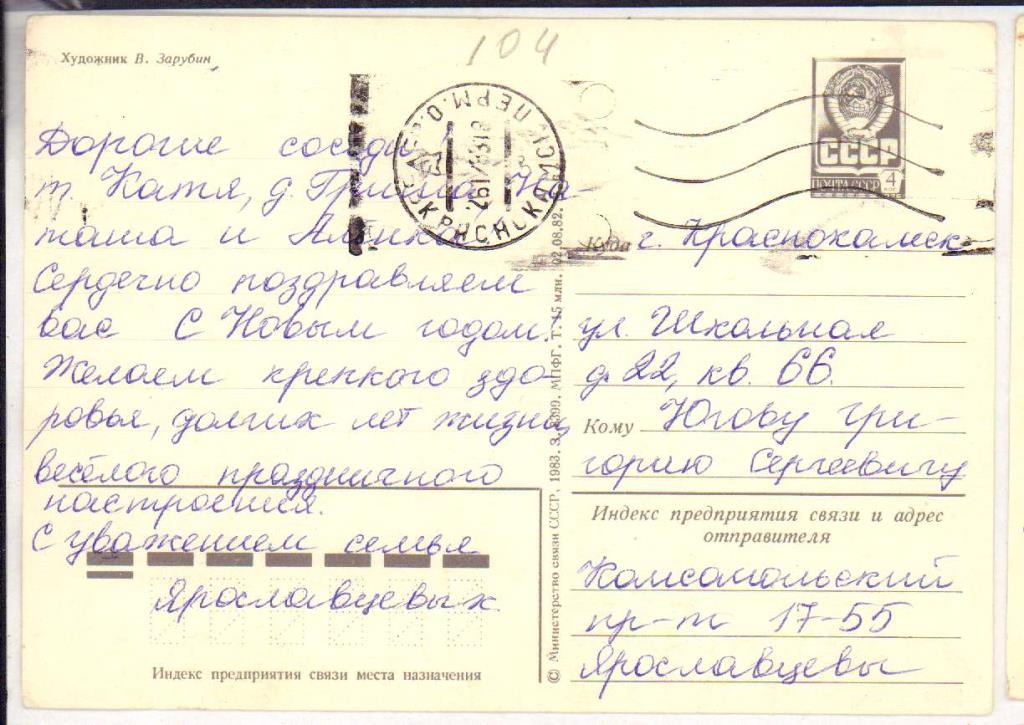 104
Художник В. Зарубин
Дорогие соседи!
т. Катя, д. Гриша, На-
таша и Алёнка
Сердечно поздравляем
вас С Новым годом.
Желаем крепкого здо-
ровья, долгих лет жизни,
весёлого праздничного
настроения.
С уважением семья
Ярославцевых.
Индекс предприятия связи места назначения
КРАСНОКАМСК ПЕРМ. О
СССР
ПОЧТА СССР 4
Куда г. Краснокамск
ул. Школьная
д. 22, кв. 66.
Кому Югову Гри-
горию Сергеевичу
Индекс предприятия связи и адрес
отправителя
Комсомольский
пр-т 17-55
Ярославцевы
© Министерство связи СССР, 1983. МПФГ. Т. 15 млн. 02.08.82.